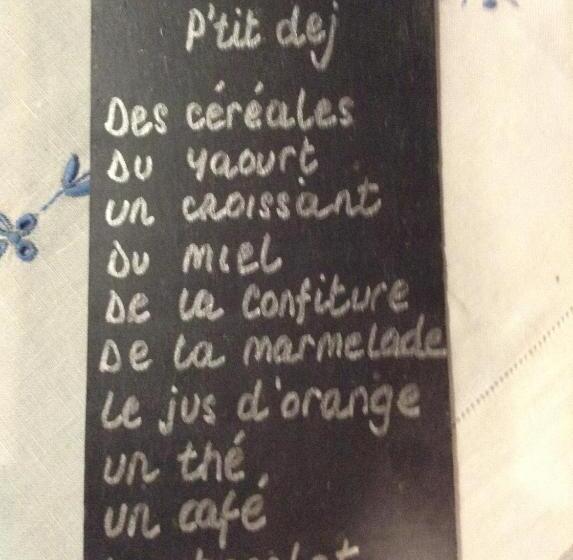 P'tit dej
Des céréales
Du yaourt
un croissant
Du miel
De la Confiture
De la marmelade
Le jus d'orange
un thé
un café